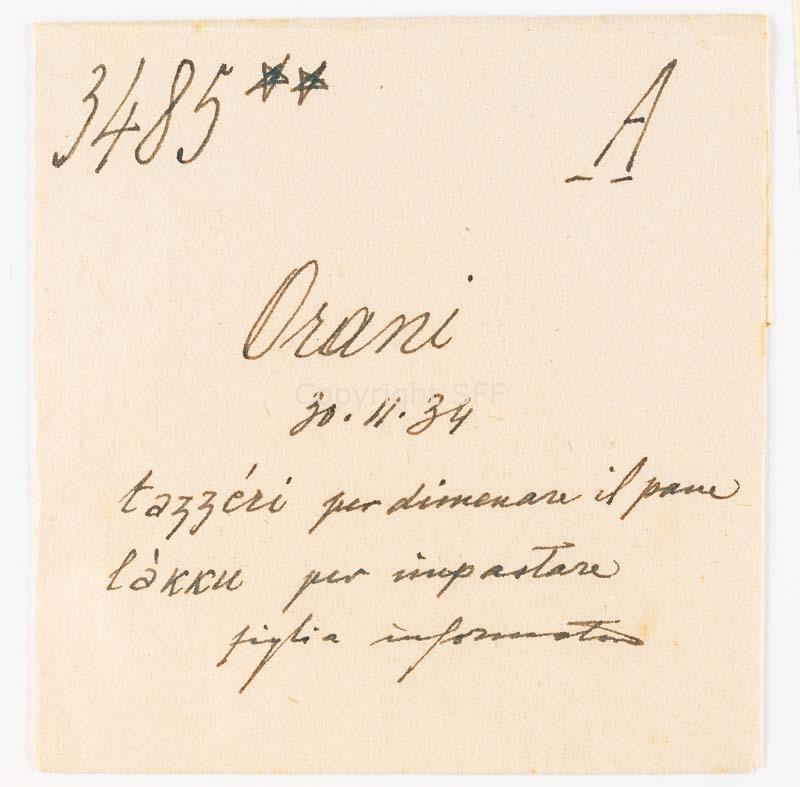 3485** A
Orani
Copyright SFF
30.11.34
tazzéri per dimenare il pane
làkku per impastare
figlia informatore